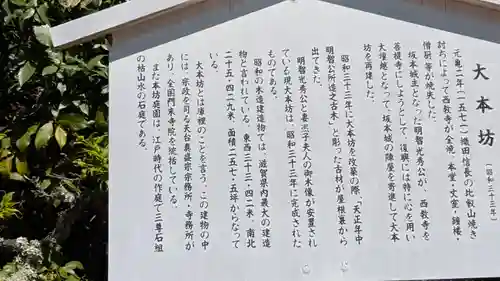 大本坊（昭和三十三年）
元亀二年（一五七一）織田信長の比叡山焼き
討ちによって西教寺が全焼、本堂・文室・鐘楼・
僧房等が焼失した。
坂本城主となった明智光秀公が、西教寺を
菩提寺にしようとして、復興には特に心を用い
大壇越となって、坂本城の陣屋を寄進して大本
坊を再建した。
昭和三十三年に大本坊を改築の際、「天正年中
明智公所造之古木」と彫った古材が屋根裏から
出てきた。
明智光秀公と妻熙子夫人の御木像が安置され
ている現大本坊は、昭和三十三年に完成された
ものである。
昭和の木造建造物では、滋賀県内最大の建造
物と言われている。東西三十三・四二米、南北
二十五・四二九米、面積二五七・五坪からなって
いる。
大本坊とは庫裡のことを言う。この建物の中
には、宗政を司る天台真盛宗宗務所・寺務所が
あり、全国門末寺院を統括している。
また本坊庭園は、江戸時代の作庭で三尊石組
の枯山水の石庭である。